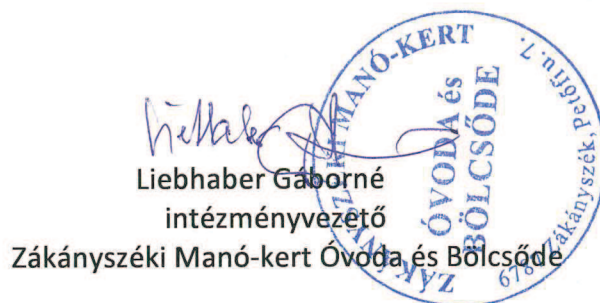 Liebhaber
Liebhaber Gáborné
intézményvezető
Zákányszéki Manó-kert Óvoda és Bölcsőde
ZÁKÁNYSZÉKI MANÓ-KERT
ÓVODA és
BÖLCSŐDE
6787 Zákányszék, Petőfi u. 7.